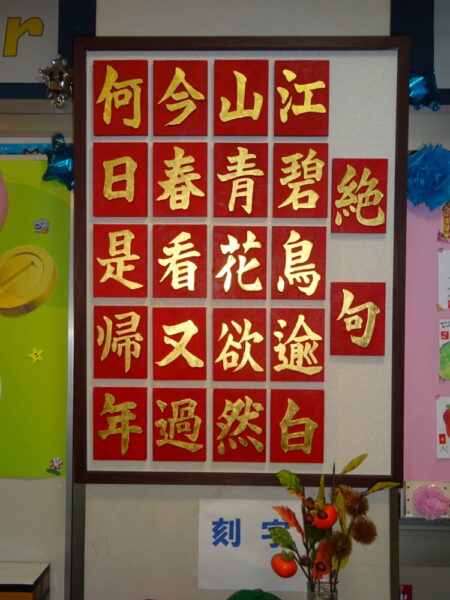 絶句
江碧鳥逾白
山青花欲然
今春看又過
何日是帰年
刻字
r